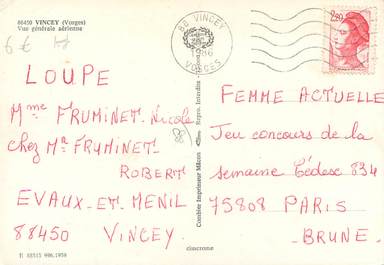 88450 VINCEY (Vosges)
Vue générale aérienne
6 €
88 VINCEY
1986
VOSGES
2,20
LOUPE
Mme FRUMINET Nicole
chez Mr FRUMINET
ROBERT
EVAUX-ET-MENIL
88450 VINCEY
88
Combier Imprimeur Mâcon
FEMME ACTUELLE
Jeu concours de la
semaine Cédesc 834
75808 PARIS
BRUNE
cimcrome